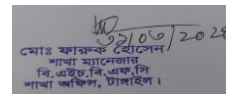 ৩১/০৩/২০২৪
মোঃ ফারুক হোসেন
শাখা ম্যানেজার
বি.এইচ.বি.এফ.সি
শাখা অফিস, টাঙ্গাইল।